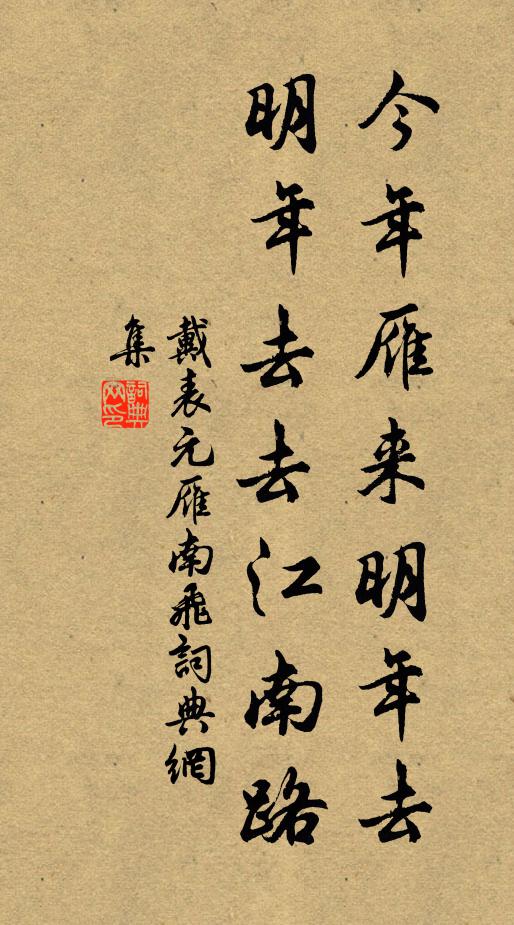 今年雁来明年去
明年去去江南路
戴表元雁南飛詞典網
集
詞典网印